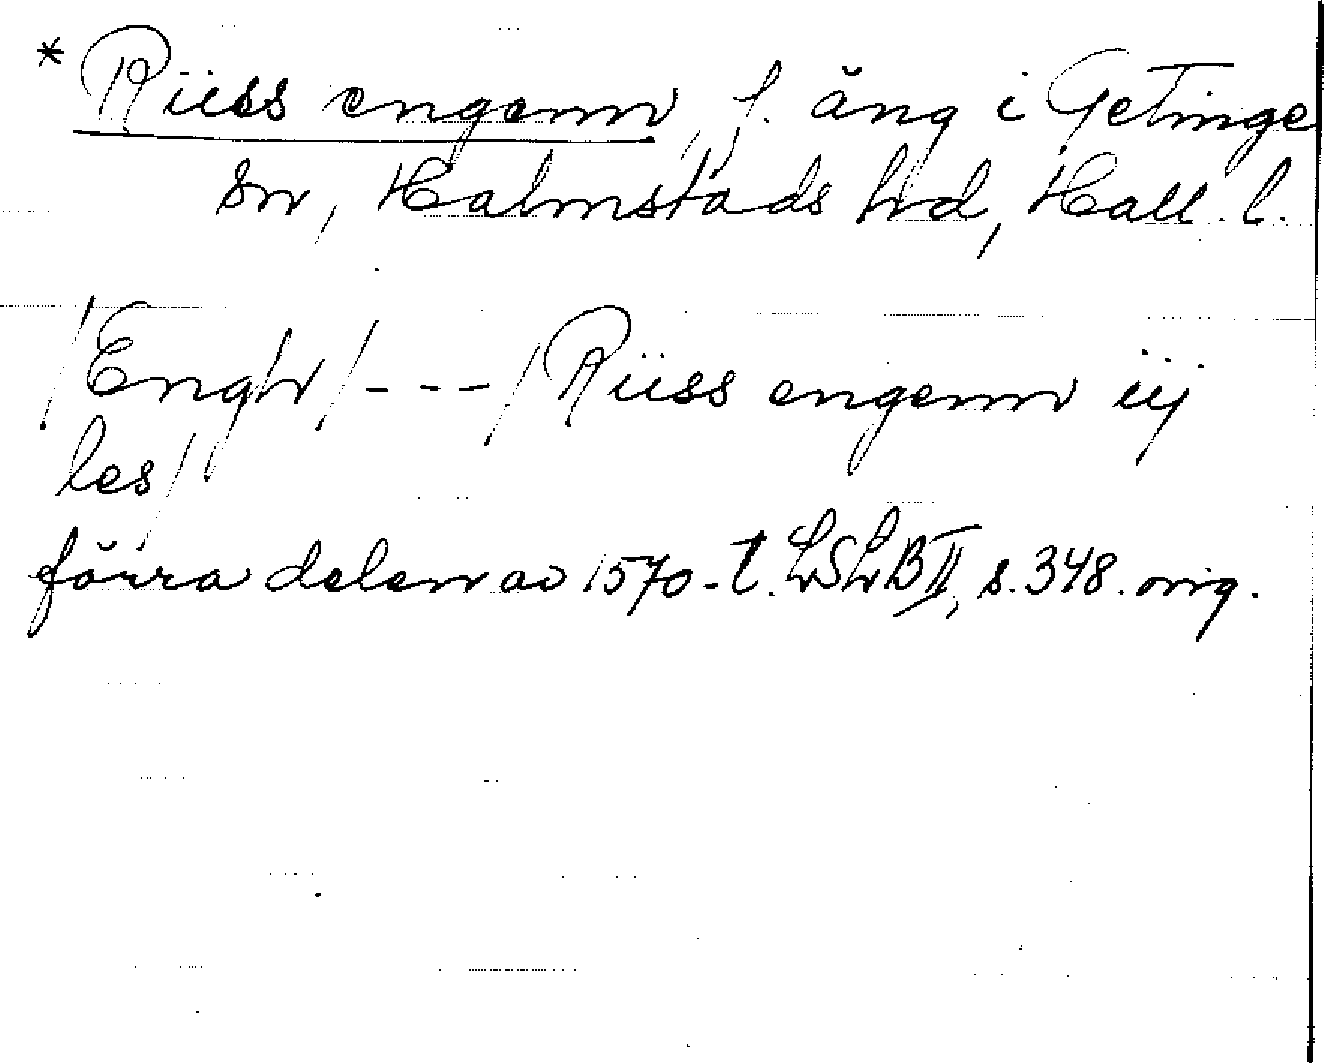 *Rüss engenn, f. äng i Getinge
sn, Halmstads hd, Hall. l.
/Engh/---/Rüss engenn iij
les/
förra delen av 1570-t. LSLB II, s. 348. orig.